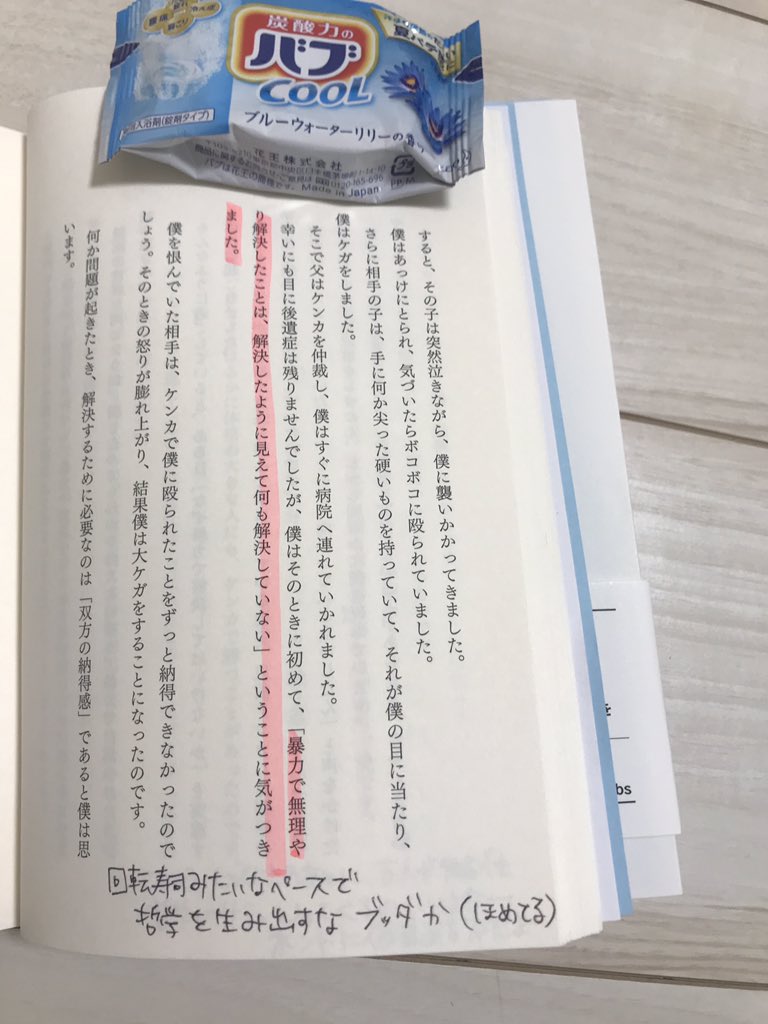 炭酸力の
バブ
COOL
ブルーウォーターリリーの香り
入浴剤(錠剤タイプ)
花王株式会社
バブは花王の商標です。Made in Japan
すると、その子は突然泣きながら、僕に襲いかかってきました。
僕はあっけにとられ、気づいたらボコボコに殴られていました。
さらに相手の子は、手に何か尖った硬いものを持っていて、それが僕の目に当たり、
僕はケガをしました。
そこで父はケンカを仲裁し、僕はすぐに病院へ連れていかれました。
幸いにも目に後遺症は残りませんでしたが、僕はそのときに初めて、「暴力で無理や
り解決したことは、解決したように見えて何も解決していない」ということに気がつき
ました。
僕を恨んでいた相手は、ケンカで僕に殴られたことをずっと納得できなかったので
しょう。そのときの怒りが膨れ上がり、結果僕は大ケガをすることになったのです。
何か問題が起きたとき、解決するために必要なのは「双方の納得感」であると僕は思
います。
回転寿司みたいなペースで
哲学を生み出すな ブッダか(ほめてる)
を
bs